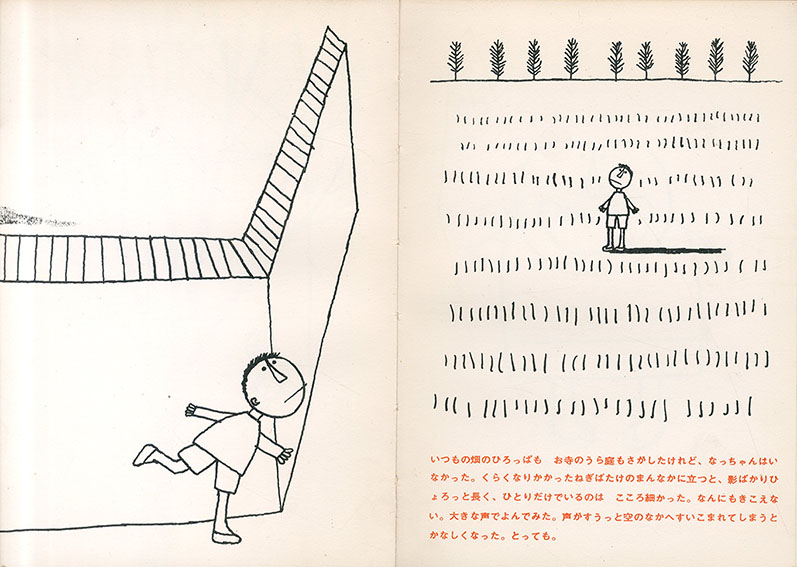 いつもの畑のひろっぱも　お寺のうら庭もさがしたけれど、なっちゃんはい
なかった。くらくなりかかったねぎばたけのまんなかに立つと、影ばかりひ
ょろっと長く、ひとりだけでいるのは　こころ細かった。なんにもきこえな
い。大きな声でよんでみた。声がすうっと空のなかへすいこまれてしまうと
かなしくなった。とっても。